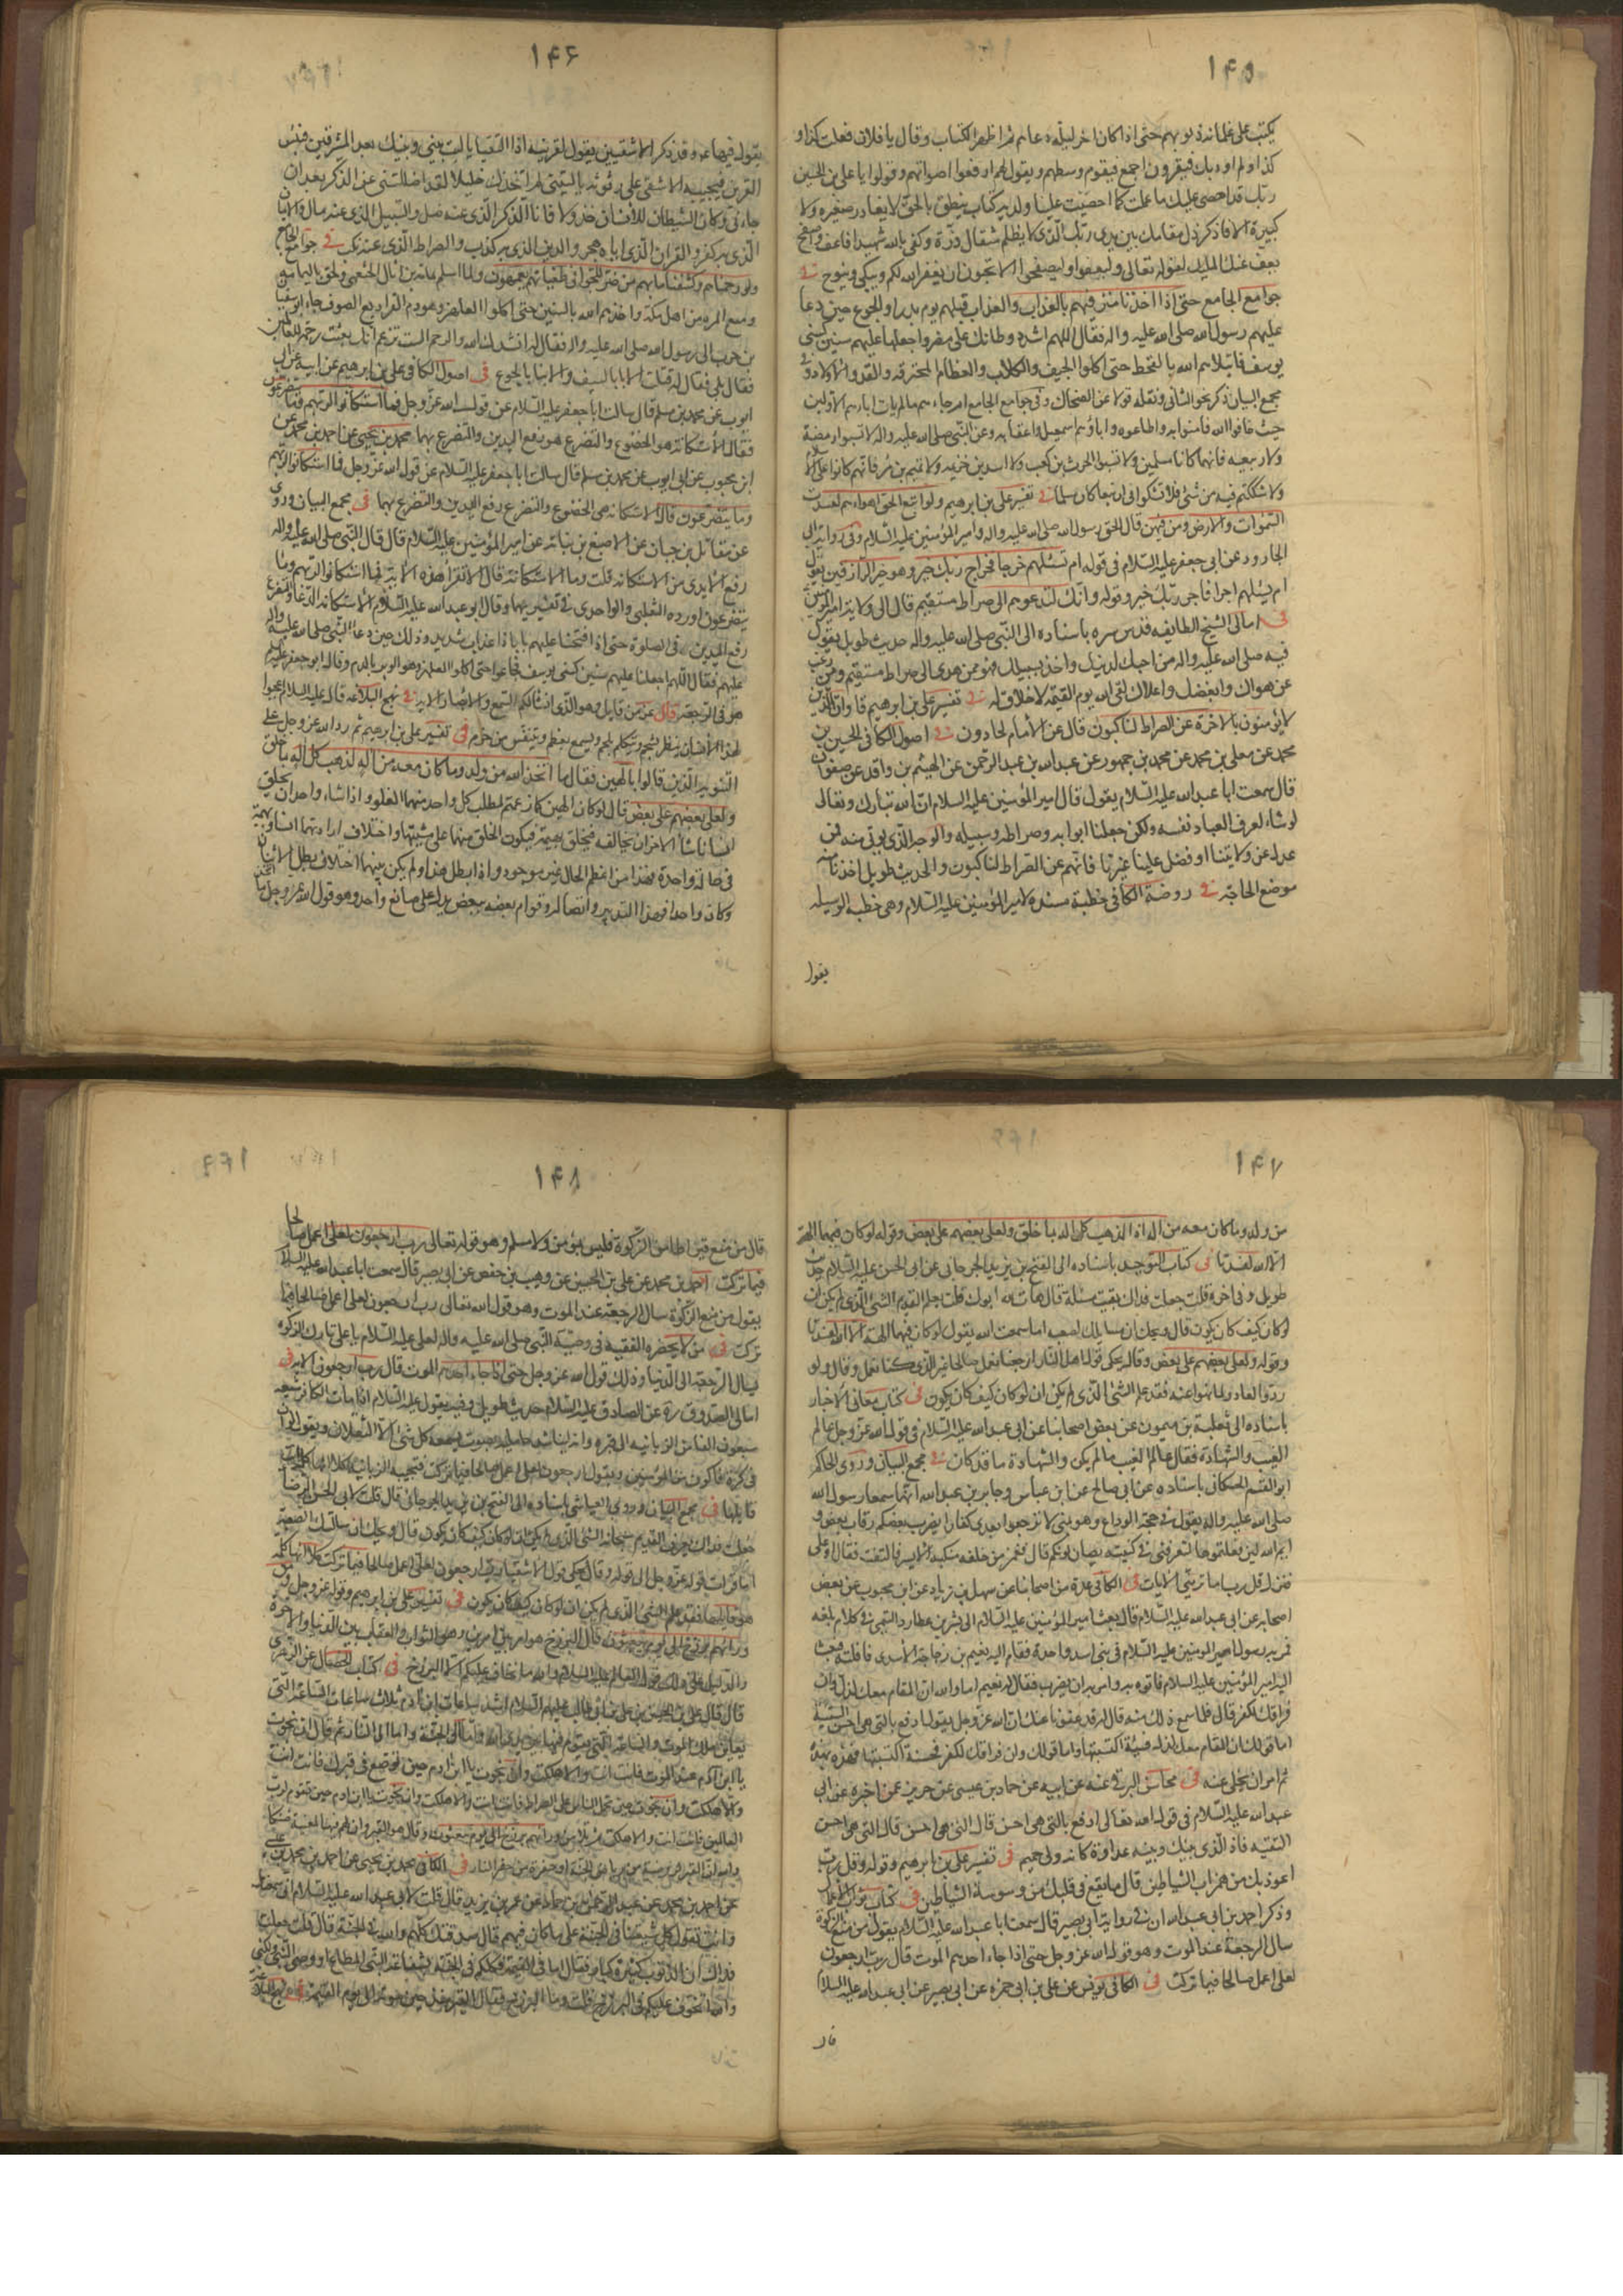 ۱۴۵
يكتب على غلمانه ذنوبهم حتى اذا كان اخر ليلة دعاهم ثم اظهر الكتاب وقال يا فلان فعلت كذا و
كذا ولم اودبك فيقرون اجمع فيقوم وسطهم ويقول لهم ارفعوا اصواتكم وقولوا يا على بن الحسين
ربك قد احصى عليك ما عملت كما احصيت علينا ولديه كتاب ينطق بالحق لا يغادر صغيرة ولا
كبيرة الا فاذكر ذل مقامك بين يدى ربك الذى لا يظلم مثقال ذرة وكفى بالله شهيدا فاعف واصفح
يعف عنك المليك لقوله تعالى وليعفوا وليصفحوا الا تحبون ان يغفر الله لكم ويبكى وينوح فى
جوامع الجامع حتى اذا اخذنا مترفيهم بالعذاب والعذاب قتلهم يوم بدر او الجوع حين دعا
عليهم رسول الله صلى الله عليه واله فقال اللهم اشدد وطاتك على مضر واجعلها عليهم سنين كسنى
يوسف فابتلاهم الله بالقحط حتى اكلوا الجيف والكلاب والعظام المحترقة والقد والاولاد و فى
مجمع البيان ذكر نحو الثانى ونقله قولا عن الضحاك وفى جوامع الجامع ام جاءهم ما لم يات اباءهم الاولين
حيث خافوا الله فامنوا به واطاعوه واباؤهم اسمعيل واعقابه وعن النبى صلى الله عليه واله لا تسبوا مضر
ولا ربيعه فانهما كانا مسلمين ولا تسبوا الحرث بن كعب ولا اسد بن خزيمه ولا تميم بن مر فانهم كانوا على الاسلام
وما شككتم فيه من شئ فلا تشكوا فى ان تبعا كان مسلما فى تفسير على بن ابرهيم ولو اتبع الحق اهواءهم لفسدت
السموات والارض ومن فيهن قال الحق رسول الله صلى الله عليه واله وامير المؤمنين عليه السلام وفى رواية ابى
الجارود عن ابى جعفر عليه السلام فى قوله ام تسئلهم خرجا فخراج ربك خير وهو خير الرازقين يقول
ام تسئلهم اجرا فاجر ربك خير وقوله وانك لتدعوهم الى صراط مستقيم قال الى ولاية امير المؤمنين
فى امالى الشيخ الطايفه قدس سره باسناده الى النبى صلى الله عليه واله حديث طويل يقول
فيه صلى الله عليه واله من احبك لدينك واخذ بسبيلك فهو ممن هدى الى صراط مستقيم ومن رغب
عن هواك وابغضك وانجلاك لقى الله يوم القيمة لا خلاق له فى تفسير على بن ابرهيم قا وان الذين
لا يؤمنون بالاخرة عن الصراط لناكبون قال عن الامام لحادون فى اصول الكافى الحسين بن
محمد عن معلى بن محمد عن محمد بن جمهور عن عبدالله بن عبد الرحمن عن الهيثم بن واقد عن مقرن
قال سمعت ابا عبد الله عليه السلام يقول قال امير المؤمنين عليه السلام ان الله تبارك وتعالى
لو شاء لعرف العباد نفسه ولكن جعلنا ابوابه وصراطه وسبيله والوجه الذى يؤتى منه فمن
عدل عن ولايتنا او فضل علينا غيرنا فانهم عن الصراط لناكبون والحديث طويل اخذنا منه
موضع الحاجة فى روضة الكافى خطبة مسندة لامير المؤمنين عليه السلام وهى خطبه الوسيله
يقول
۱۴۶
يقول فيها عم وقد ذكر الاشقيين يقول لقرينه اذا التقيا يا ليت بينى وبينك بعد المشرقين فبئس
القرين فيجيبه الاشقى على رثوثه يا ليتنى لم اتخذك خليلا لقد اضللتنى عن الذكر بعد ان
جاءنى وكان الشيطان للانسان خذولا فانا الذكر الذى عنه ضل والسبيل الذى عنه مال والايمان
الذى به كفر والقران الذى اياه هجر والدين الذى به كذب والصراط الذى عنه نكب فى جوامع الجامع
ولو رحمناهم وكشفنا ما بهم من ضر للجوا فى طغيانهم يعمهون ولما اسلم ثمامة بن اثال الحنفى ولحق باليمامه
ومنع الميره من اهل مكة واخذهم الله بالسنين حتى اكلوا العلهز وهو دم القراد مع الصوف جاء ابو سفيان
بن حرب الى رسول الله صلى الله عليه واله فقال له انشدك الله والرحم الست تزعم انك بعثت رحمة للعالمين
فقال بلى فقال له قتلت الاباء بالسيف والابناء بالجوع فى اصول الكافى على بن ابرهيم عن ابيه عن ابى
ايوب عن محمد بن مسلم قال سالت ابا جعفر عليه السلام عن قول الله عز وجل فما استكانوا لربهم وما يتضرعون
فقال الاستكانة هو الخضوع والتضرع هو رفع اليدين والتضرع بهما محمد بن يحيى عن احمد بن محمد عن
ابن محبوب عن ابى ايوب عن محمد بن مسلم قال سالت ابا جعفر عليه السلام عن قول الله عز وجل فما استكانوا لربهم
وما يتضرعون قال الاستكانه هى الخضوع والتضرع رفع اليدين والتضرع بهما فى مجمع البيان وروى
عن مقاتل بن حيان عن الاصبغ بن نباته عن امير المؤمنين عليه السلام قال قال النبى صلى الله عليه واله
رفع الايدى من الاستكانه قلت وما الاستكانة قال الا تقرأ هذه الاية فما استكانوا لربهم وما
يتضرعون اورده الثعلبى والواحدى فى تفسيريهما وقال ابو عبد الله عليه السلام الاستكانة الدعاء والتضرع
رفع اليدين فى الصلوة حتى اذا فتحنا عليهم بابا ذا عذاب شديد وذلك حين دعا النبى صلى الله عليه واله
عليهم فقال اللهم اجعلها عليهم سنين كسنى يوسف فجاعوا حتى اكلوا العلهز وهو الوبر بالدم وقال ابو جعفر عليه السلام
هو فى الرجعة قال عز من قايل وهو الذى انشا لكم السمع والابصار الايه فى نهج البلاغه قال عليه السلام اعجبوا
لهذا الانسان ينظر بشحم ويتكلم بلحم ويسمع بعظم ويتنفس من خرم فى تفسير على بن ابرهيم ثم رد الله عز وجل على
الثنويه الذين قالوا بالهين فقال ما اتخذ الله من ولد وما كان معه من اله اذا لذهب كل اله بما خلق
ولعلى بعضهم على بعض قال لو كان الهين كما زعمتم لطلب كل واحد منهما العلو واذا شاء واحد ان يخلق
انسانا شاء الاخر ان يخالفه فيخلق بهيمة فيكون الخلق منهما على مشيتهما واختلاف ارادتهما انسانا وبهيمة
فى حالة واحدة فهذا من اعظم المحال غير موجود واذا بطل هذا ولم يكن بينهما اختلاف بطل الاثنان
وكان واحدا فهذا التدبير واتصاله وقوام بعضه ببعض يدل على صانع واحد وهو قول الله عز وجل ما اتخذ الله
۱۴۷
من ولد وما كان معه من اله اذا لذهب كل اله بما خلق ولعلى بعضهم على بعض وقوله لو كان فيهما الهة
الا الله لفسدتا فى كتاب التوحيد باسناده الى الفتح بن يزيد الجرجانى عن ابى الحسن عليه السلام حديث
طويل وفى اخره قلت جعلت فداك بقيت مسئلة قال هات لله ابوك قلت يعلم القديم الشئ الذى لم يكن ان
لو كان كيف كان يكون قال ويحك ان مسايلك لصعبه اما سمعت الله يقول لو كان فيهما الهة الا الله لفسدتا
وقوله ولعلى بعضهم على بعض وقال يحكى قول اهل النار ارجعنا نعمل صالحا غير الذى كنا نعمل وقال ولو
ردوا لعادوا لما نهوا عنه فقد علم الشئ الذى لم يكن ان لو كان كيف كان يكون فى كتاب معانى الاخبار
باسناده الى ثعلبة بن ميمون عن بعض اصحابنا عن ابى عبد الله عليه السلام فى قول الله عز وجل عالم
الغيب والشهادة فقال عالم الغيب ما لم يكن والشهادة ما قد كان فى مجمع البيان وروى الحاكم
ابو القسم الحسكانى باسناده عن ابى صالح عن ابن عباس وجابر بن عبد الله انهما سمعا رسول الله
صلى الله عليه واله يقول فى حجة الوداع وهو بمنى لا ترجعوا بعدى كفارا يضرب بعضكم رقاب بعض و
ايم الله لئن فعلتموها لتعرفنى فى كتيبه يضاربونكم قال فغمز من خلفه منكبه الايسر فالتفت فقال او على
فنزل قل رب اما ترينى الايات فى الكافى عدة من اصحابنا عن سهل بن زياد عن ابن محبوب عن بعض
اصحابه عن ابى عبد الله عليه السلام قال بعث امير المؤمنين عليه السلام الى بشر بن عطارد التميمى فى كلام بلغه
فمر به رسول امير المومنين عليه السلام فى بنى اسد واخذه فقام اليه نعيم بن دجاجة الاسدى فافلته فبعث
اليه امير المؤمنين عليه السلام فاتوه به وامر به ان يضرب فقال له نعيم اما والله ان المقام معك لذل وان
فراقك لكفر قال فلما سمع ذلك منه قال له قد عفونا عنك ان الله عز وجل يقول ادفع بالتى هى احسن السيئة
اما قولك ان المقام معك لذل فسيئة اكتسبتها واما قولك وان فراقك لكفر فحسنة اكتسبتها فهذه بهذه
ثم امر ان يخلى عنه فى محاسن البرقى عنه عن ابيه عن حماد بن عيسى عن حريز عمن اخبره عن ابى
عبد الله عليه السلام فى قول الله تعالى ادفع بالتى هى احسن قال التى هى احسن
التقيه فاذا الذى بينك وبينه عداوة كانه ولى حميم فى تفسير على بن ابرهيم وقوله وقل رب
اعوذ بك من همزات الشياطين قال ما يقع فى قلبك من وسوسة الشياطين فى كتاب ثواب الاعمال
وذكر احمد بن ابى عبد الله ان فى رواية ابى بصير قال سمعت ابا عبد الله عليه السلام يقول من منع الزكوة
سال الرجعة عند الموت وهو قول الله عز وجل حتى اذا جاء احدهم الموت قال رب ارجعون
لعلى اعمل صالحا فيما تركت فى الكافى يونس عن على بن ابى حمزه عن ابى بصير عن ابى عبد الله عليه السلام
قال
۱۴۸
قال من منع قيراطا من الزكوة فليس بمؤمن ولا مسلم وهو قوله تعالى رب ارجعون لعلى اعمل صالحا
فيما تركت احمد بن محمد عن على بن الحسين عن وهيب بن حفص عن ابى بصير قال سمعت ابا عبد الله عليه السلام
يقول من منع الزكوة سال الرجعة عند الموت وهو قول الله تعالى رب ارجعون لعلى اعمل صالحا فيما
تركت فى من لا يحضره الفقيه فى وصية النبى صلى الله عليه واله لعلى عليه السلام يا على تارك الزكوه
يسال الرجعة الى الدنيا وذلك قول الله عز وجل حتى اذا جاء احدهم الموت قال رب ارجعون الايه فى
امالى الصدوق ره عن الصادق عليه السلام حديث طويل وفيه يقول عليه السلام اذا مات الكافر شيعه
سبعون الفا من الزبانيه الى قبره وانه ليناشد حامليه بصوت يسمعه كل شئ الا الثقلان ويقول لو ان
لى كرة فاكون من المؤمنين ويقول ارجعون لعلى اعمل صالحا فيما تركت فتجيبه الزبانية كلا انها كلمة انت
قايلها فى مجمع البيان وروى العياشى باسناده الى الفتح بن يزيد الجرجانى قال قلت لابى الحسن الرضا
جعلت فداك يعرف القديم سبحانه الشئ الذى لم يكن ان لو كان كيف كان يكون قال ويحك ان مسالتك لصعبة
اما قرات قوله عز وجل الى قوله وقال يحكى قول الاشقياء رب ارجعون لعلى اعمل صالحا فيما تركت كلا انها كلمة
هو قايلها فقد علم الشئ الذى لم يكن ان لو كان كيف كان يكون فى تفسير على بن ابرهيم وقوله عز وجل ومن
ورائهم برزخ الى يوم يبعثون قال البرزخ هو امر بين امرين وهو الثواب والعقاب بين الدنيا والاخرة
والدليل على ذلك قول العالم عليه السلام والله ما نخاف عليكم الا البرزخ فى كتاب الخصال عن الزهرى
قال قال على بن الحسين بن على بن ابى طالب عليهم السلام اشد ساعات ابن ادم ثلاث ساعات الساعة التى
يعاين ملك الموت والساعه التى يقوم فيها من قبره فاما الى الجنة واما الى النار ثم قال ان نجوت
يا ابن ادم عند الموت فانت انت والا هلكت وان نجوت يا ابن ادم حين توضع فى قبرك فانت انت
والا هلكت وان نجوت حين يحمل الناس على الصراط فانت انت والا هلكت وان نجوت يا ابن ادم حين يقوم لرب
العالمين فانت انت والا هلكت ثم تلا ومن ورائهم برزخ الى يوم يبعثون وقال هو القبر وان لهم فيها لمعيشة ضنكا
والله ان القبر لروضة من رياض الجنة او حفرة من حفر النار فى الكافى محمد بن يحيى عن احمد بن محمد بن
عن احمد بن محمد عن عبد الرحمن بن حماد عن عمر بن يزيد قال قلت لابى عبد الله عليه السلام انى سمعتك
وانت تقول كل شيعتنا فى الجنة على ما كان فيهم قال صدقتك كلهم والله فى الجنة قال قلت جعلت
فداك ان الذنوب كثيرة كبار فقال اما فى القيمة فكلكم فى الجنة بشفاعة النبى المطاع او وصى النبى ولكنى
والله اتخوف عليكم فى البرزخ قلت وما البرزخ فقال القبر منذ حين موته الى يوم القيمة فى نهج البلاغة